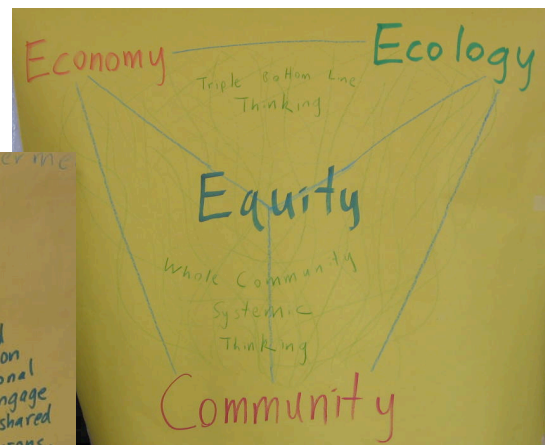 Economy
Ecology
Triple Bottom Line
Thinking
Equity
Whole Community
Systemic
Thinking
Community
on
onal
ngage
shared